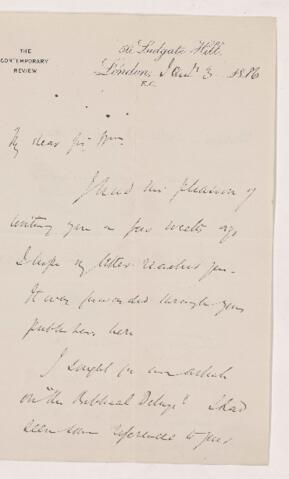 THE
CONTEMPORARY
REVIEW
Ludgate Hill.
London, Jan'y 3 1886
E.C.
My dear Sir Wm.
I had the pleasure of
writing you a few weeks ago
I hope my letter reached you.
It was forwarded through your
publishers here
I sought for an article
on "The Biblical Deluge". I had
seen some references to your